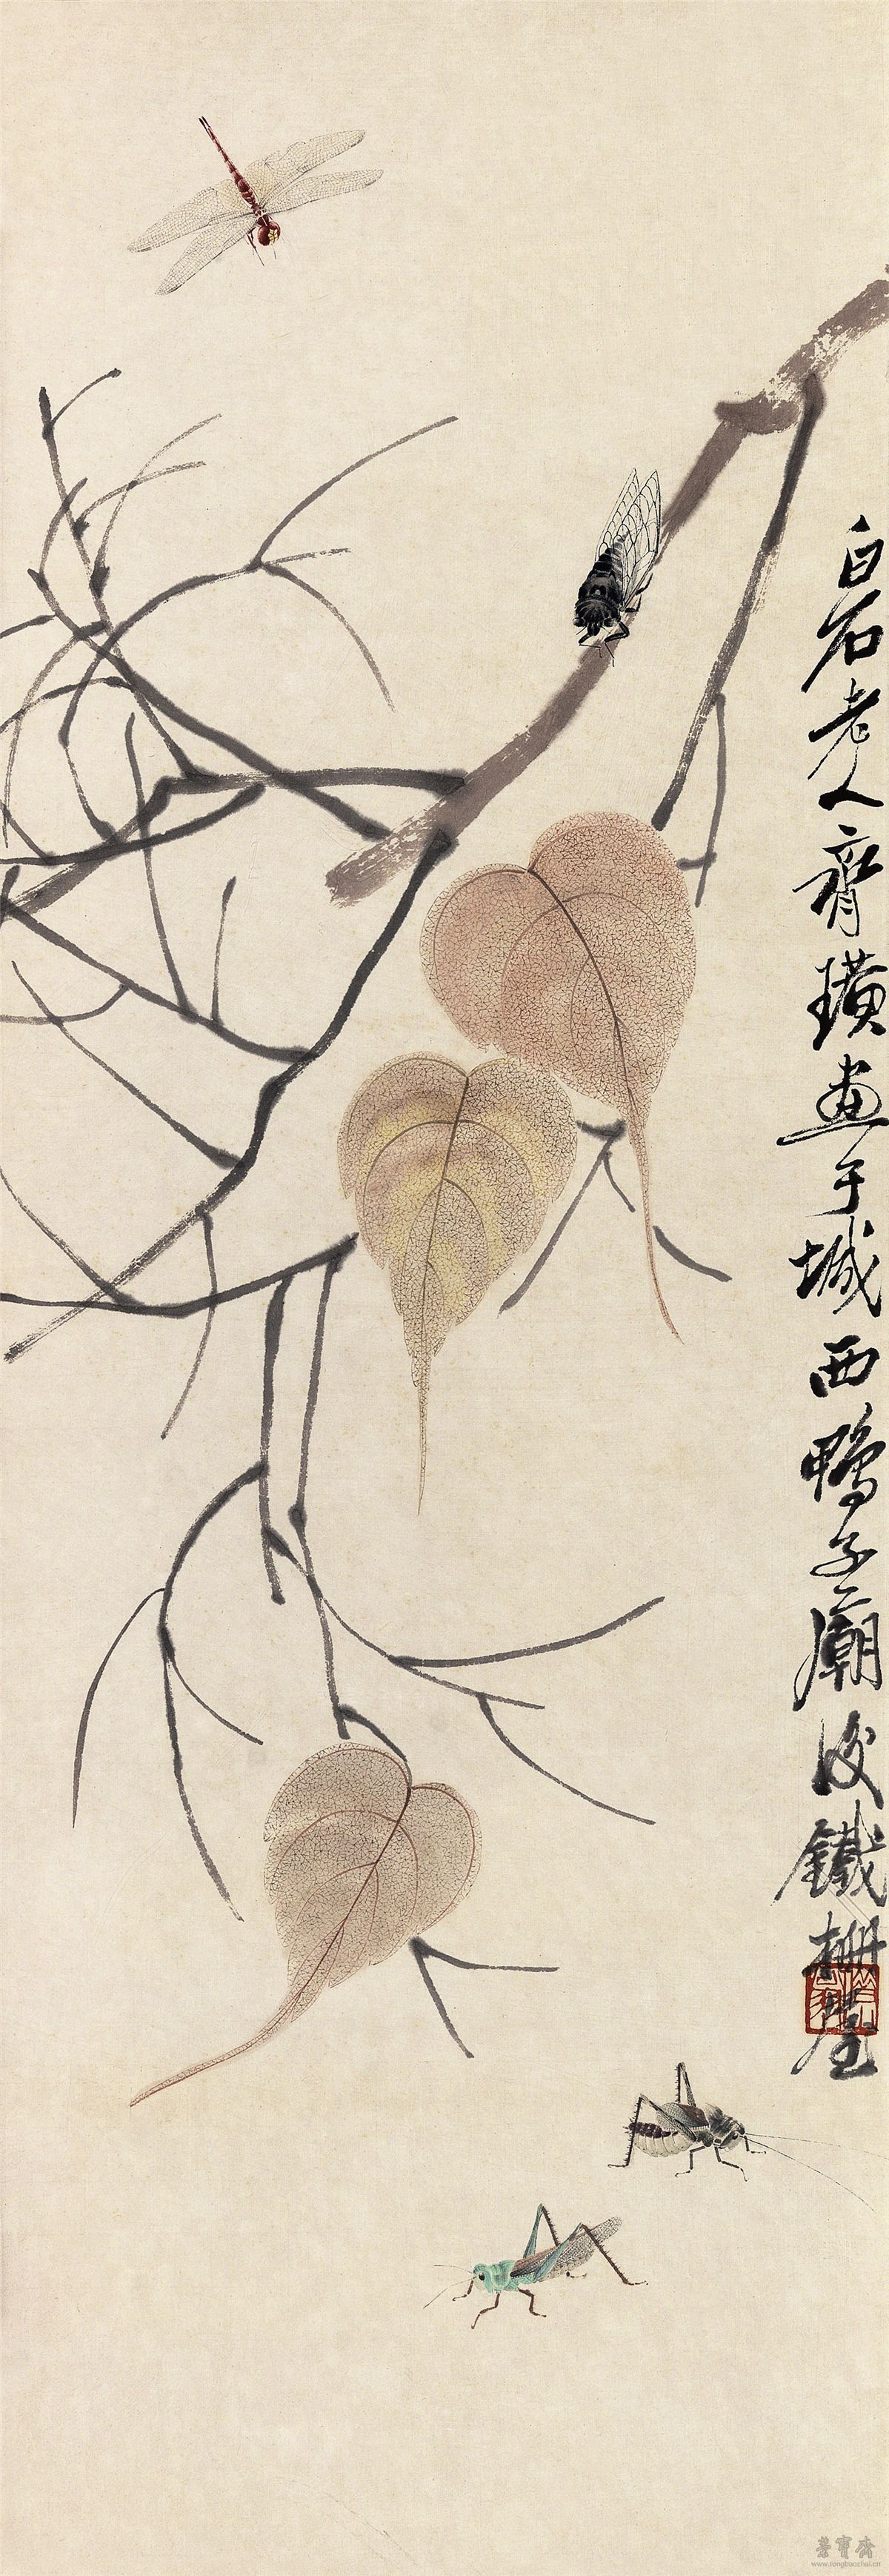 白石老人齊璜畫于城西鴨子廟後鐵栅屋
榮寶齋
www.rongbaozhai.cn